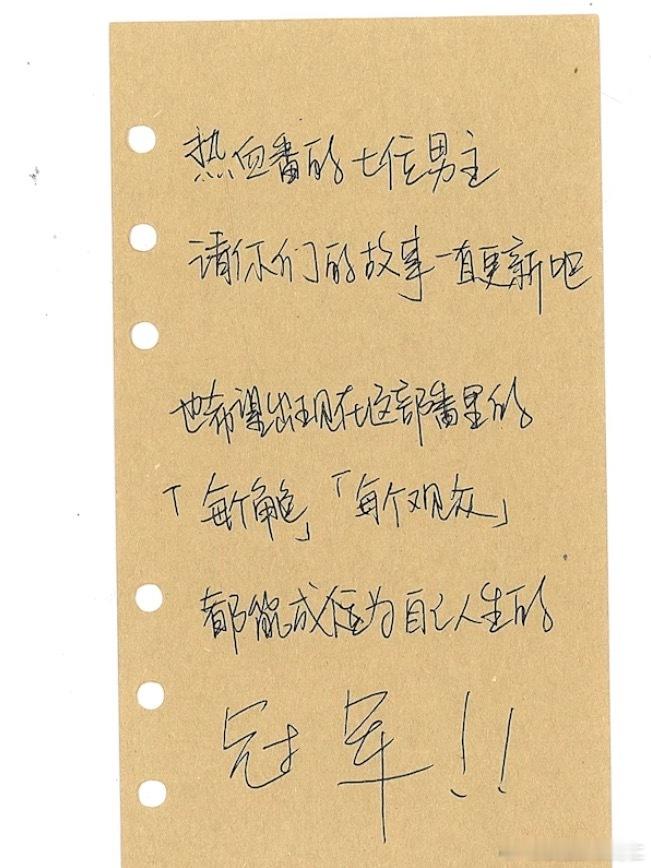 热血番的七位男主
请你们的故事一直更新吧
也希望出现在这部番里的
「每个角色」「每个观众」
都能成为自己人生的
冠军!!